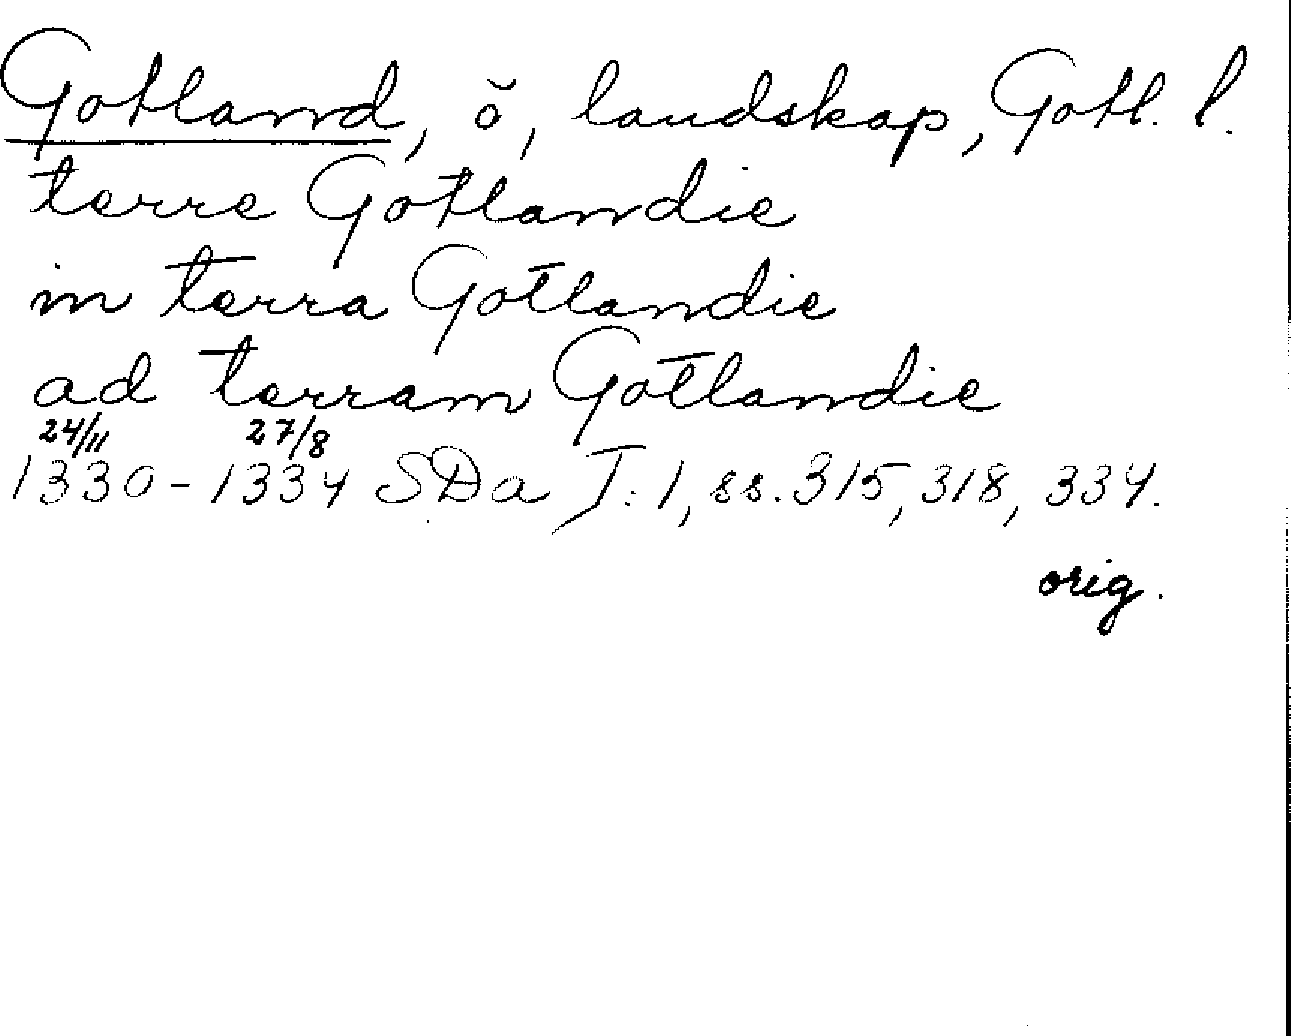 Gotland, ö, landskap, Gotl. l.
terre Gotlandie
in terra Gotlandie
ad terram Gotlandie
24/11 27/8
1330-1334 SDa I:1, ss. 315, 318, 334.
orig.